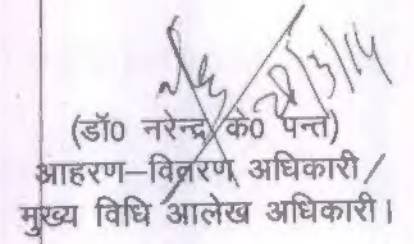 28/3/14
(डॉ0 नरेन्द्र के0 पन्त)
आहरण–वितरण अधिकारी /
मुख्य विधि आलेख अधिकारी।